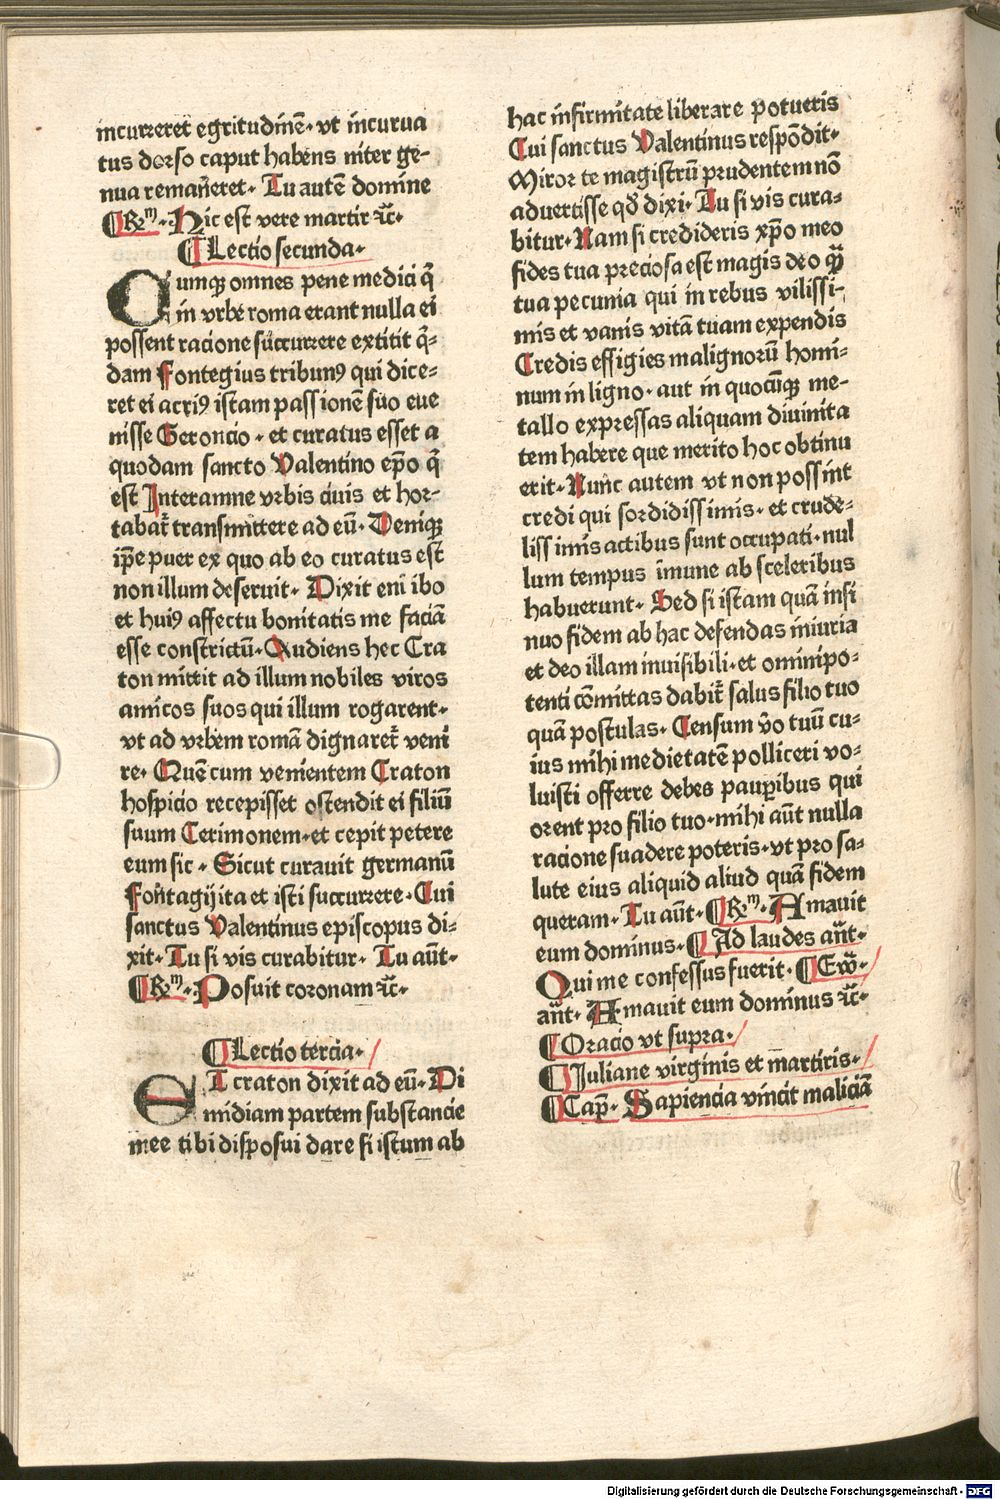 incurreret egritudinē· vt incurua
tus dorso caput habens inter ge-
nua remaneret· Tu autē domine
¶ Rm̄· Hic est vere martir ⁊c̄·
¶ Lectio secunda·
Cumqꝫ omnes pene medici q̄
in vrbe roma erant nulla ei
possent racione succurrere extitit q̄-
dam Fontegius tribunꝰ qui dice-
ret ei acriꝰ istam passionē suo eue
nisse Geroncio· et curatus esset a
quodam sancto Valentino ep̄o q̄
est Interamne vrbis ciuis et hor-
tabat̄ transmittere ad eū· Deniqꝫ
ip̄e puer ex quo ab eo curatus est
non illum deseruit· Dixit eni ibo
et huiꝰ affectu bonitatis me faciā
esse constrictū· Audiens hec Cra
ton mittit ad illum nobiles viros
amicos suos qui illum rogarent·
vt ad vrbem romā dignaret̄ veni
re· Quē cum venientem Craton
hospicio recepisset ostendit ei filiū
suum Cerimonem· et cepit petere
eum sic· Sicut curauit germanū
Fontagij ita et isti succurrere· Cui
sanctus Valentinus episcopus di-
xit· Tu si vis curabitur· Tu aūt·
¶ Rm̄· Posuit coronam ⁊c̄·
¶ Lectio tercia·
ET craton dixit ad eū· Di
midiam partem substancie
mee tibi disposui dare si istum ab
hac infirmitate liberare potueris
Cui sanctus Valentinus respōdit·
Miror te magistrū prudentem nō
aduertisse qđ dixi· Tu si vis cura-
bitur· Nam si credideris xp̄o meo
fides tua preciosa est magis deo q̄ꝫ
tua pecunia qui in rebus vilissi-
mis et vanis vitā tuam expendis
Credis effigies malignorū homi-
num in ligno· aut in quocūqꝫ me-
tallo expressas aliquam diuinita
tem habere que merito hoc obtinu
erit· Nunc autem vt non possint
credi qui sordidissimis· et crude-
lissimis actibus sunt occupati· nul
lum tempus īmune ab sceleribus
habuerunt· Sed si istam quā insi
nuo fidem ab hac defendas iniuria
et deo illam inuisibili· et ominipo-
tenti cōmittas dabit̄ salus filio tuo
quā postulas· Censum v̄o tuū cu-
ius mihi medietatē polliceri vo-
luisti offerre debes pauꝑibus qui
orent pro filio tuo· mihi aūt nulla
racione suadere poteris· vt pro sa-
lute eius aliquid aliud quā fidem
queram· Tu aūt· ¶ Rm̄· Amauit
eum dominus· ¶ Ad laudes an̄t·
Qui me confessus fuerit· ¶ Ew̄·
an̄t· Amauit eum dominus ⁊c̄·
¶ Oracio vt supra·
¶ Juliane virginis et martiris·
¶ Cap̄· Sapiencia vincit maliciā
Digitalisierung gefördert durch die Deutsche Forschungsgemeinschaft - DFG